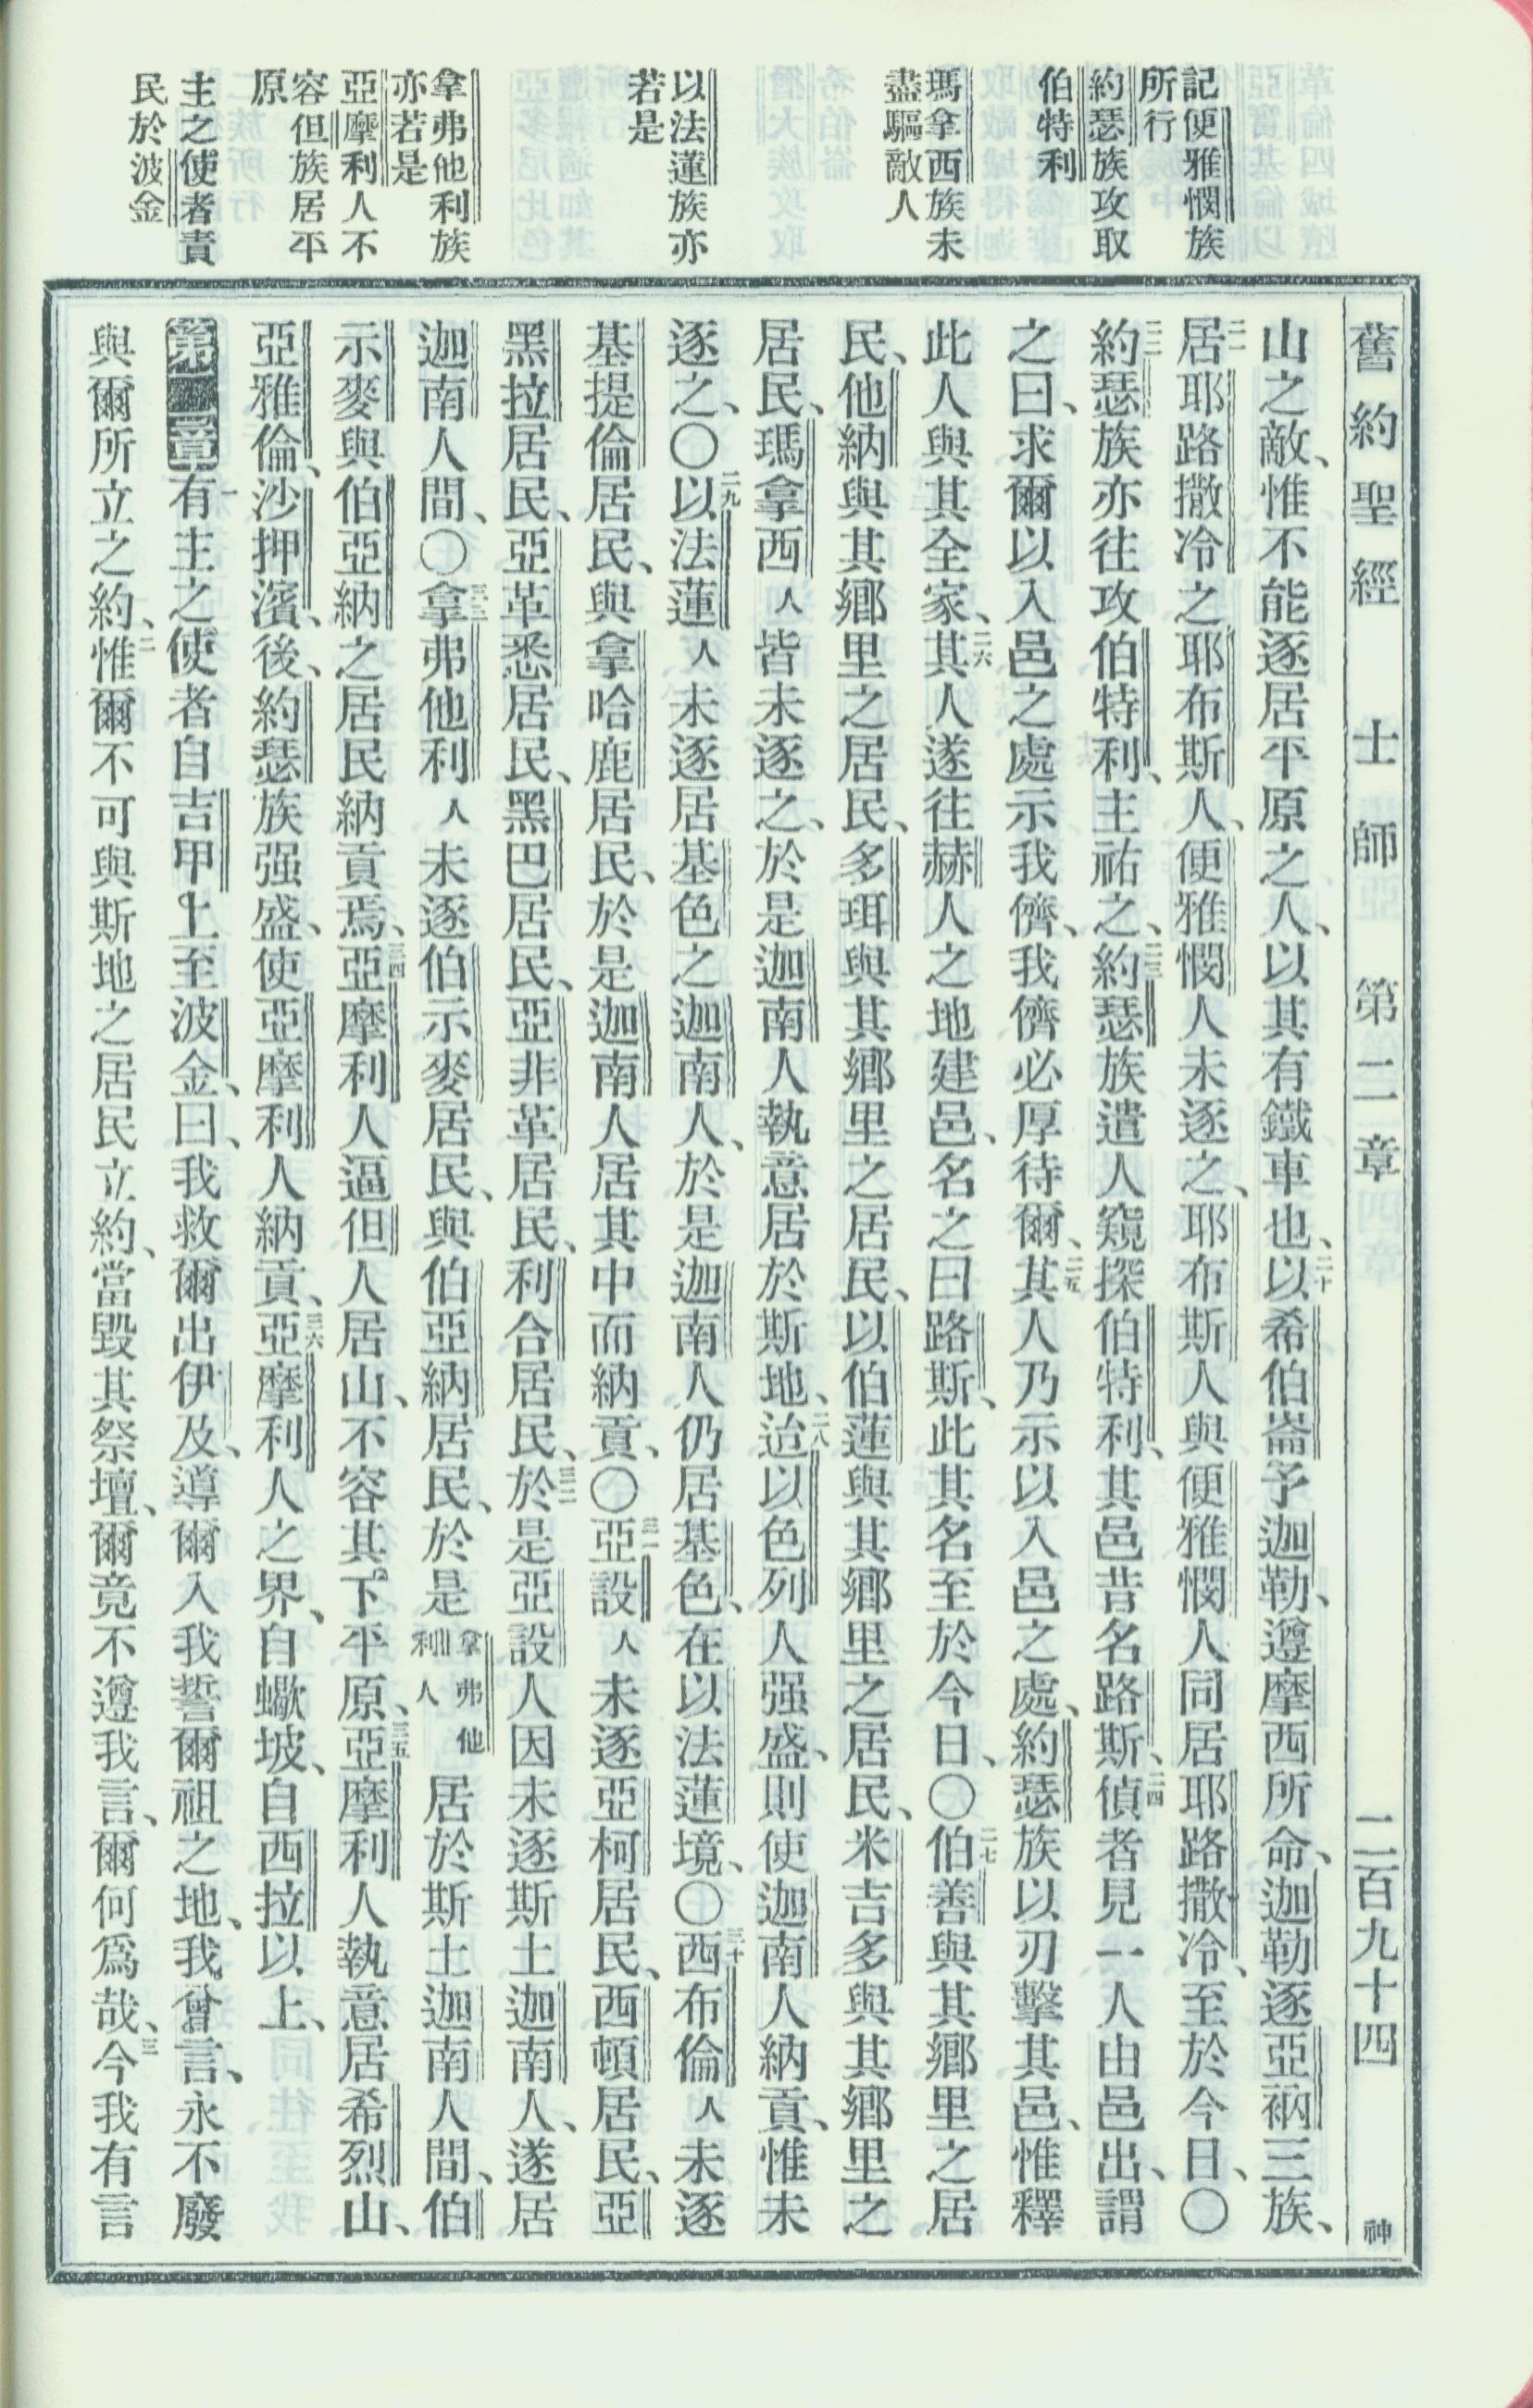 舊約聖經　士師　第二章　二百九十四　神
記便雅憫族
所行
約瑟族攻取
伯特利
瑪拿西族未
盡驅敵人
以法蓮族亦
若是
拿弗他利族
亦若是
亞摩利人不
容但族居平
原
主之使者責
民於波金
山之敵、惟不能逐居平原之人、以其有鐵車也、二十以希伯崙予迦勒、遵摩西所命、迦勒逐亞衲三族、
二一居耶路撒冷之耶布斯人、便雅憫人未逐之、耶布斯人與便雅憫人同居耶路撒冷、至於今日、〇
二二約瑟族亦往攻伯特利、主祐之、二三約瑟族遣人窺探伯特利、其邑昔名路斯、二四偵者見一人由邑出、謂
之曰、求爾以入邑之處示我儕、我儕必厚待爾、二五其人乃示以入邑之處、約瑟族以刃擊其邑、惟釋
此人與其全家、二六其人遂往赫人之地建邑、名之曰路斯、此其名至於今日、〇二七伯善與其鄉里之居
民、他納與其鄉里之居民、多珥與其鄉里之居民、以伯蓮與其鄉里之居民、米吉多與其鄉里之
居民、瑪拿西人皆未逐之、於是迦南人執意居於斯地、二八迨以色列人强盛、則使迦南人納貢、惟未
逐之、〇二九以法蓮人未逐居基色之迦南人、於是迦南人仍居基色、在以法蓮境、〇三十西布倫人未逐
基提倫居民、與拿哈鹿居民、於是迦南人居其中而納貢、〇三一亞設人未逐亞柯居民、西頓居民、亞
黑拉居民、亞革悉居民、黑巴居民、亞非革居民、利合居民、三二於是亞設人因未逐斯土迦南人、遂居
迦南人間、〇三三拿弗他利人未逐伯示麥居民、與伯亞納居民、於是拿弗他利人居於斯土迦南人間、伯
示麥與伯亞納之居民納貢焉、三四亞摩利人逼但人居山、不容其下平原、三五亞摩利人執意居希烈山、
亞雅倫、沙押濱、後、約瑟族强盛、使亞摩利人納貢、三六亞摩利人之界、自蠍坡、自西拉以上、
第二章一有主之使者自吉甲上至波金、曰、我救爾出伊及、導爾入我誓爾祖之地、我曾言、永不廢
與爾所立之約、二惟爾不可與斯地之居民立約、當毀其祭壇、爾竟不遵我言、爾何爲哉、三今我有言